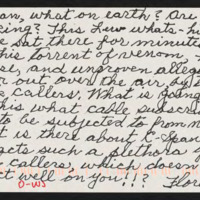 an, what on earth? Are
cing? This Lew whats-h
e sat there for minute
his torrent of venom,
se, and unproven alleg
out over the air, by
e callers. What is
his what cable subscri
to be subjected to from
t is there about C-Span
gets such a plethora
callers, which doesn't
ct well on you!!! Flor
D-WS